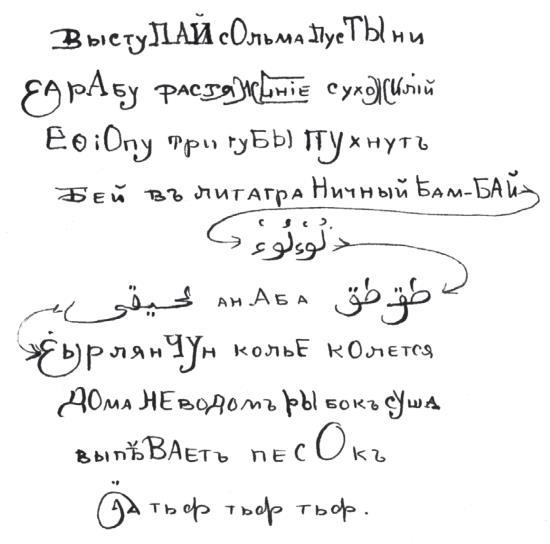 ВыстуПАЙ сОльма ПусТЫни
ЕАрАбу растяЖЕНіЕ сухоЖИлій
ЕѳіОпу три губЫ ПУхнутъ
Бей въ литагра Ничный Бам-БАЙ
لُوءْلُوءْ
طق طق анАба
ЁырлянЧУн кольЕ колется
ДОма НЕводомъ РЫбокъ суша
выпѣВАЕтъ песОкъ
тьфр тьфр тьфр.